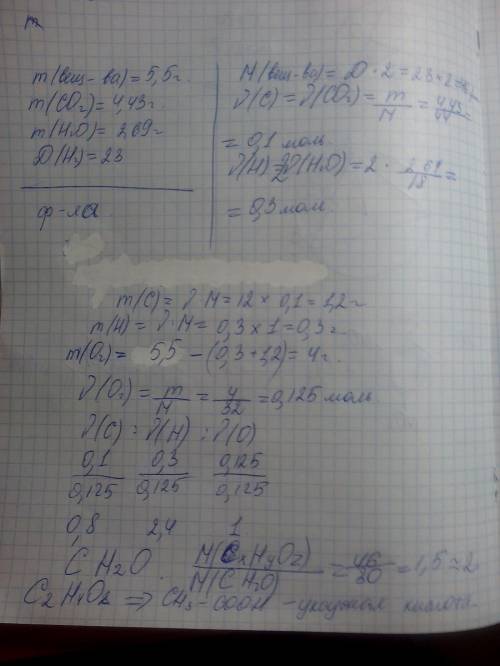 m(вещ-ва)=5,5г.
m(CO2)=4,43г
m(H2O)=2,69г
D(H2)=23
ф-ла
M(вещ-ва)= D·2=23×2=
ν(C)=ν(CO2)=m/M=4,43/44=
=0,1 моль
ν(H)=2ν(H2O)=2·2,69/18=
=0,3 мол
m(C)=ν·M=12×0,1=1,2г
m(H)=ν·M=0,3×1=0,3г.
m(O2)= 5,5-(0,3+1,2)=4г.
ν(O2)=m/M=4/32=0,125 моль
ν(C):ν(H):ν(O)
0,1/0,125 0,3/0,125 0,125/0,125
0,8 2,4 1
CH2O. M(CxHyOz)/M(CH2O)=46/30=1,5≈2
C2H4O2 ⇒ CH3-COOH-уксусная кислота.